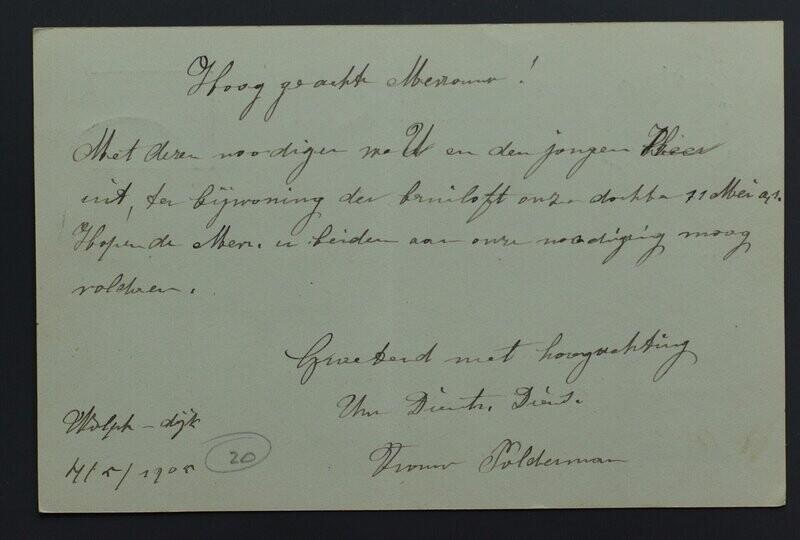 Hoog geachte Mevrouw!
Met dezen noodigen we U en den jongen Heer
uit, ter bijwoning der bruiloft onze dochter 11 Mei a,s.
Hopende Mevr. u beiden aan onze noodigig moog
voldoen.
Groetend met hoogachting
Uw Dientv. Diend.
Vrouw Polderman
Wolph-dijk
4/5/1905
20